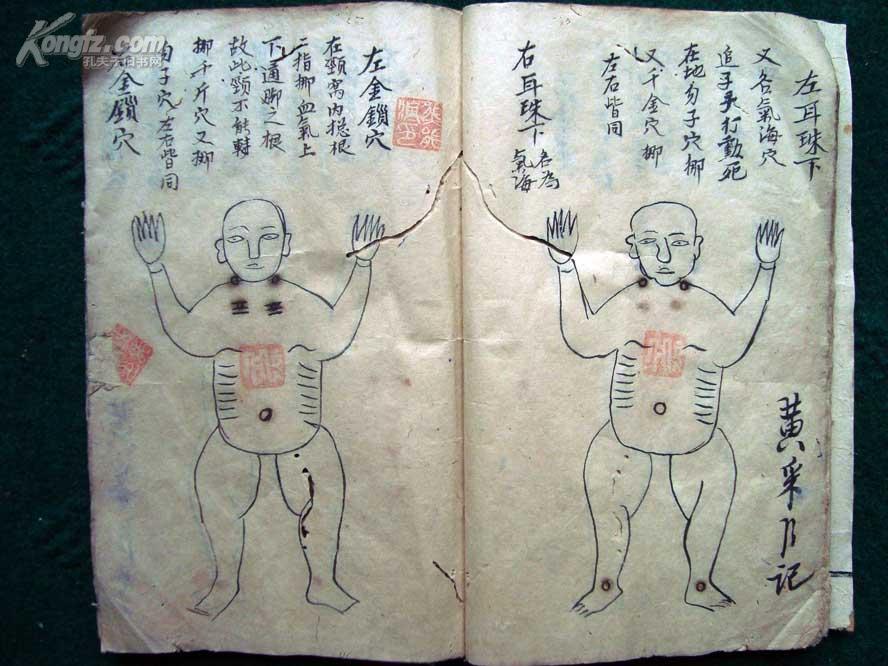 左耳珠下
又各氣海穴
追子午打動死
在地勾子穴挪
又千金穴挪
左右皆同
右耳珠下
名為
氣海
左金鎖穴
在頸窩內捴根
二指挪血氣上
下通脚之根
故此頸不能轉
挪千斤穴又挪
勾子穴左右皆同
金鎖穴
黄采月记
Kongfz.com
孔夫子旧书网